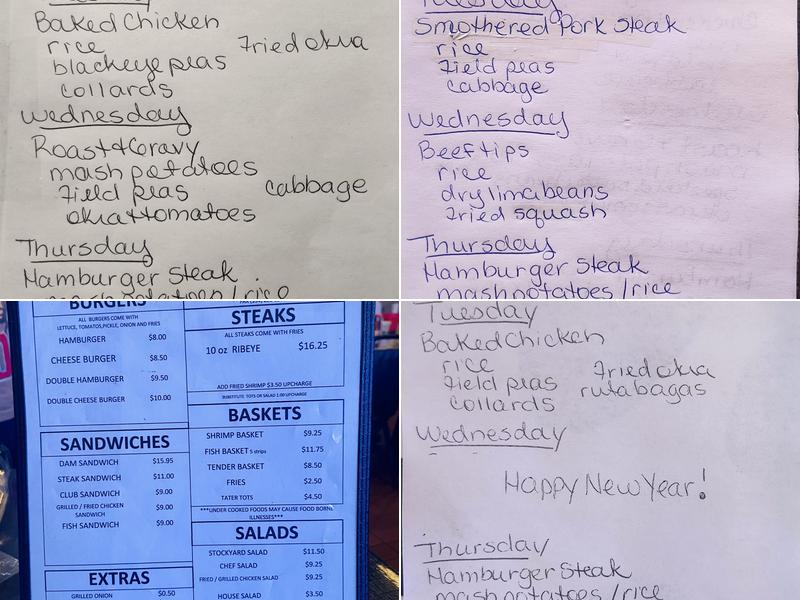 Tuesday
Baked Chicken
rice
Fried okra
blackeye peas
collards
Wednesday
Roast + Gravy
mash potatoes
Field peas
cabbage
okra + tomatoes
Thursday
Hamburger Steak
mash potatoes / rice
Tuesday
Smothered Pork Steak
rice
Field peas
cabbage
Wednesday
Beef tips
rice
dry lima beans
Fried squash
Thursday
Hamburger Steak
mash potatoes / rice
BURGERS
ALL BURGERS COME WITH
LETTUCE, TOMATOS,PICKLE, ONION AND FRIES
HAMBURGER $8.00
CHEESE BURGER $8.50
DOUBLE HAMBURGER $9.50
DOUBLE CHEESE BURGER $10.00
SANDWICHES
DAM SANDWICH $15.95
STEAK SANDWICH $11.00
CLUB SANDWICH $9.00
GRILLED / FRIED CHICKEN SANDWICH $9.00
FISH SANDWICH $9.00
EXTRAS
GRILLED ONION $0.50
STEAKS
ALL STEAKS COME WITH FRIES
10 oz RIBEYE $16.25
ADD FRIED SHRIMP $3.50 UPCHARGE
SUBSTITUTE TOTS OR SALAD 1.00 UPCHARGE
BASKETS
SHRIMP BASKET $9.25
FISH BASKET 5 strips $11.75
TENDER BASKET $8.50
FRIES $2.50
TATER TOTS $4.50
***UNDER COOKED FOODS MAY CAUSE FOOD BORNE
ILLNESSES***
SALADS
STOCKYARD SALAD $11.50
CHEF SALAD $9.25
FRIED / GRILLED CHICKEN SALAD $9.25
HOUSE SALAD $3.50
Tuesday
Baked Chicken
rice
Fried okra
Field peas
rutabagas
collards
Wednesday
Happy New Year!
Thursday
Hamburger Steak
mash potatoes / rice